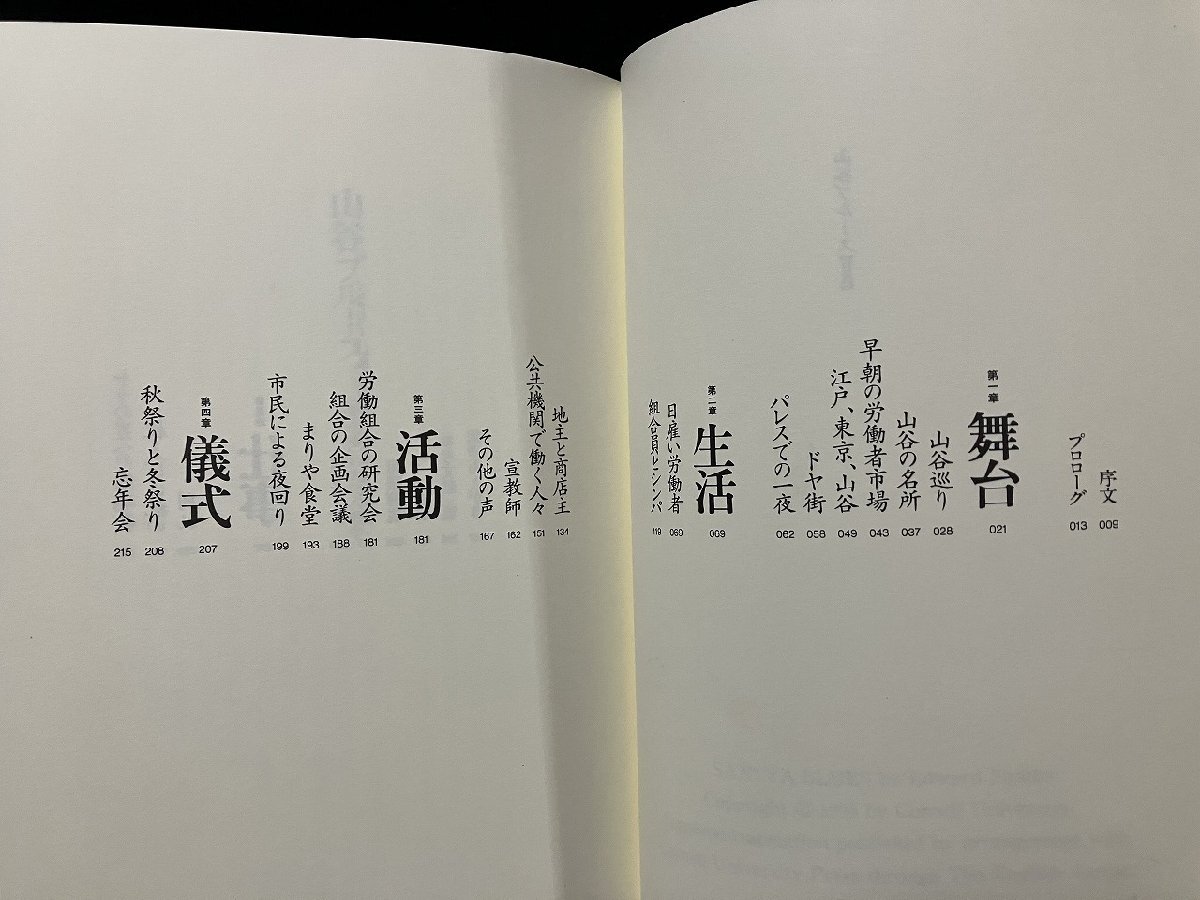 序文 009
プロローグ 013
第一章 舞台 021
山谷巡り 028
山谷の名所 037
早朝の労働者市場 043
江戸、東京、山谷 049
ドヤ街 058
パレスでの一夜 062
第二章 生活 069
日雇い労働者 080
組合員とシンパ 119
地主と商店主 134
公共機関で働く人々 151
宣教師 162
その他の声 167
第三章 活動 181
労働組合の研究会 181
組合の企画会議 188
まりや食堂 193
市民による夜回り 199
第四章 儀式 207
秋祭りと冬祭り 208
忘年会 215